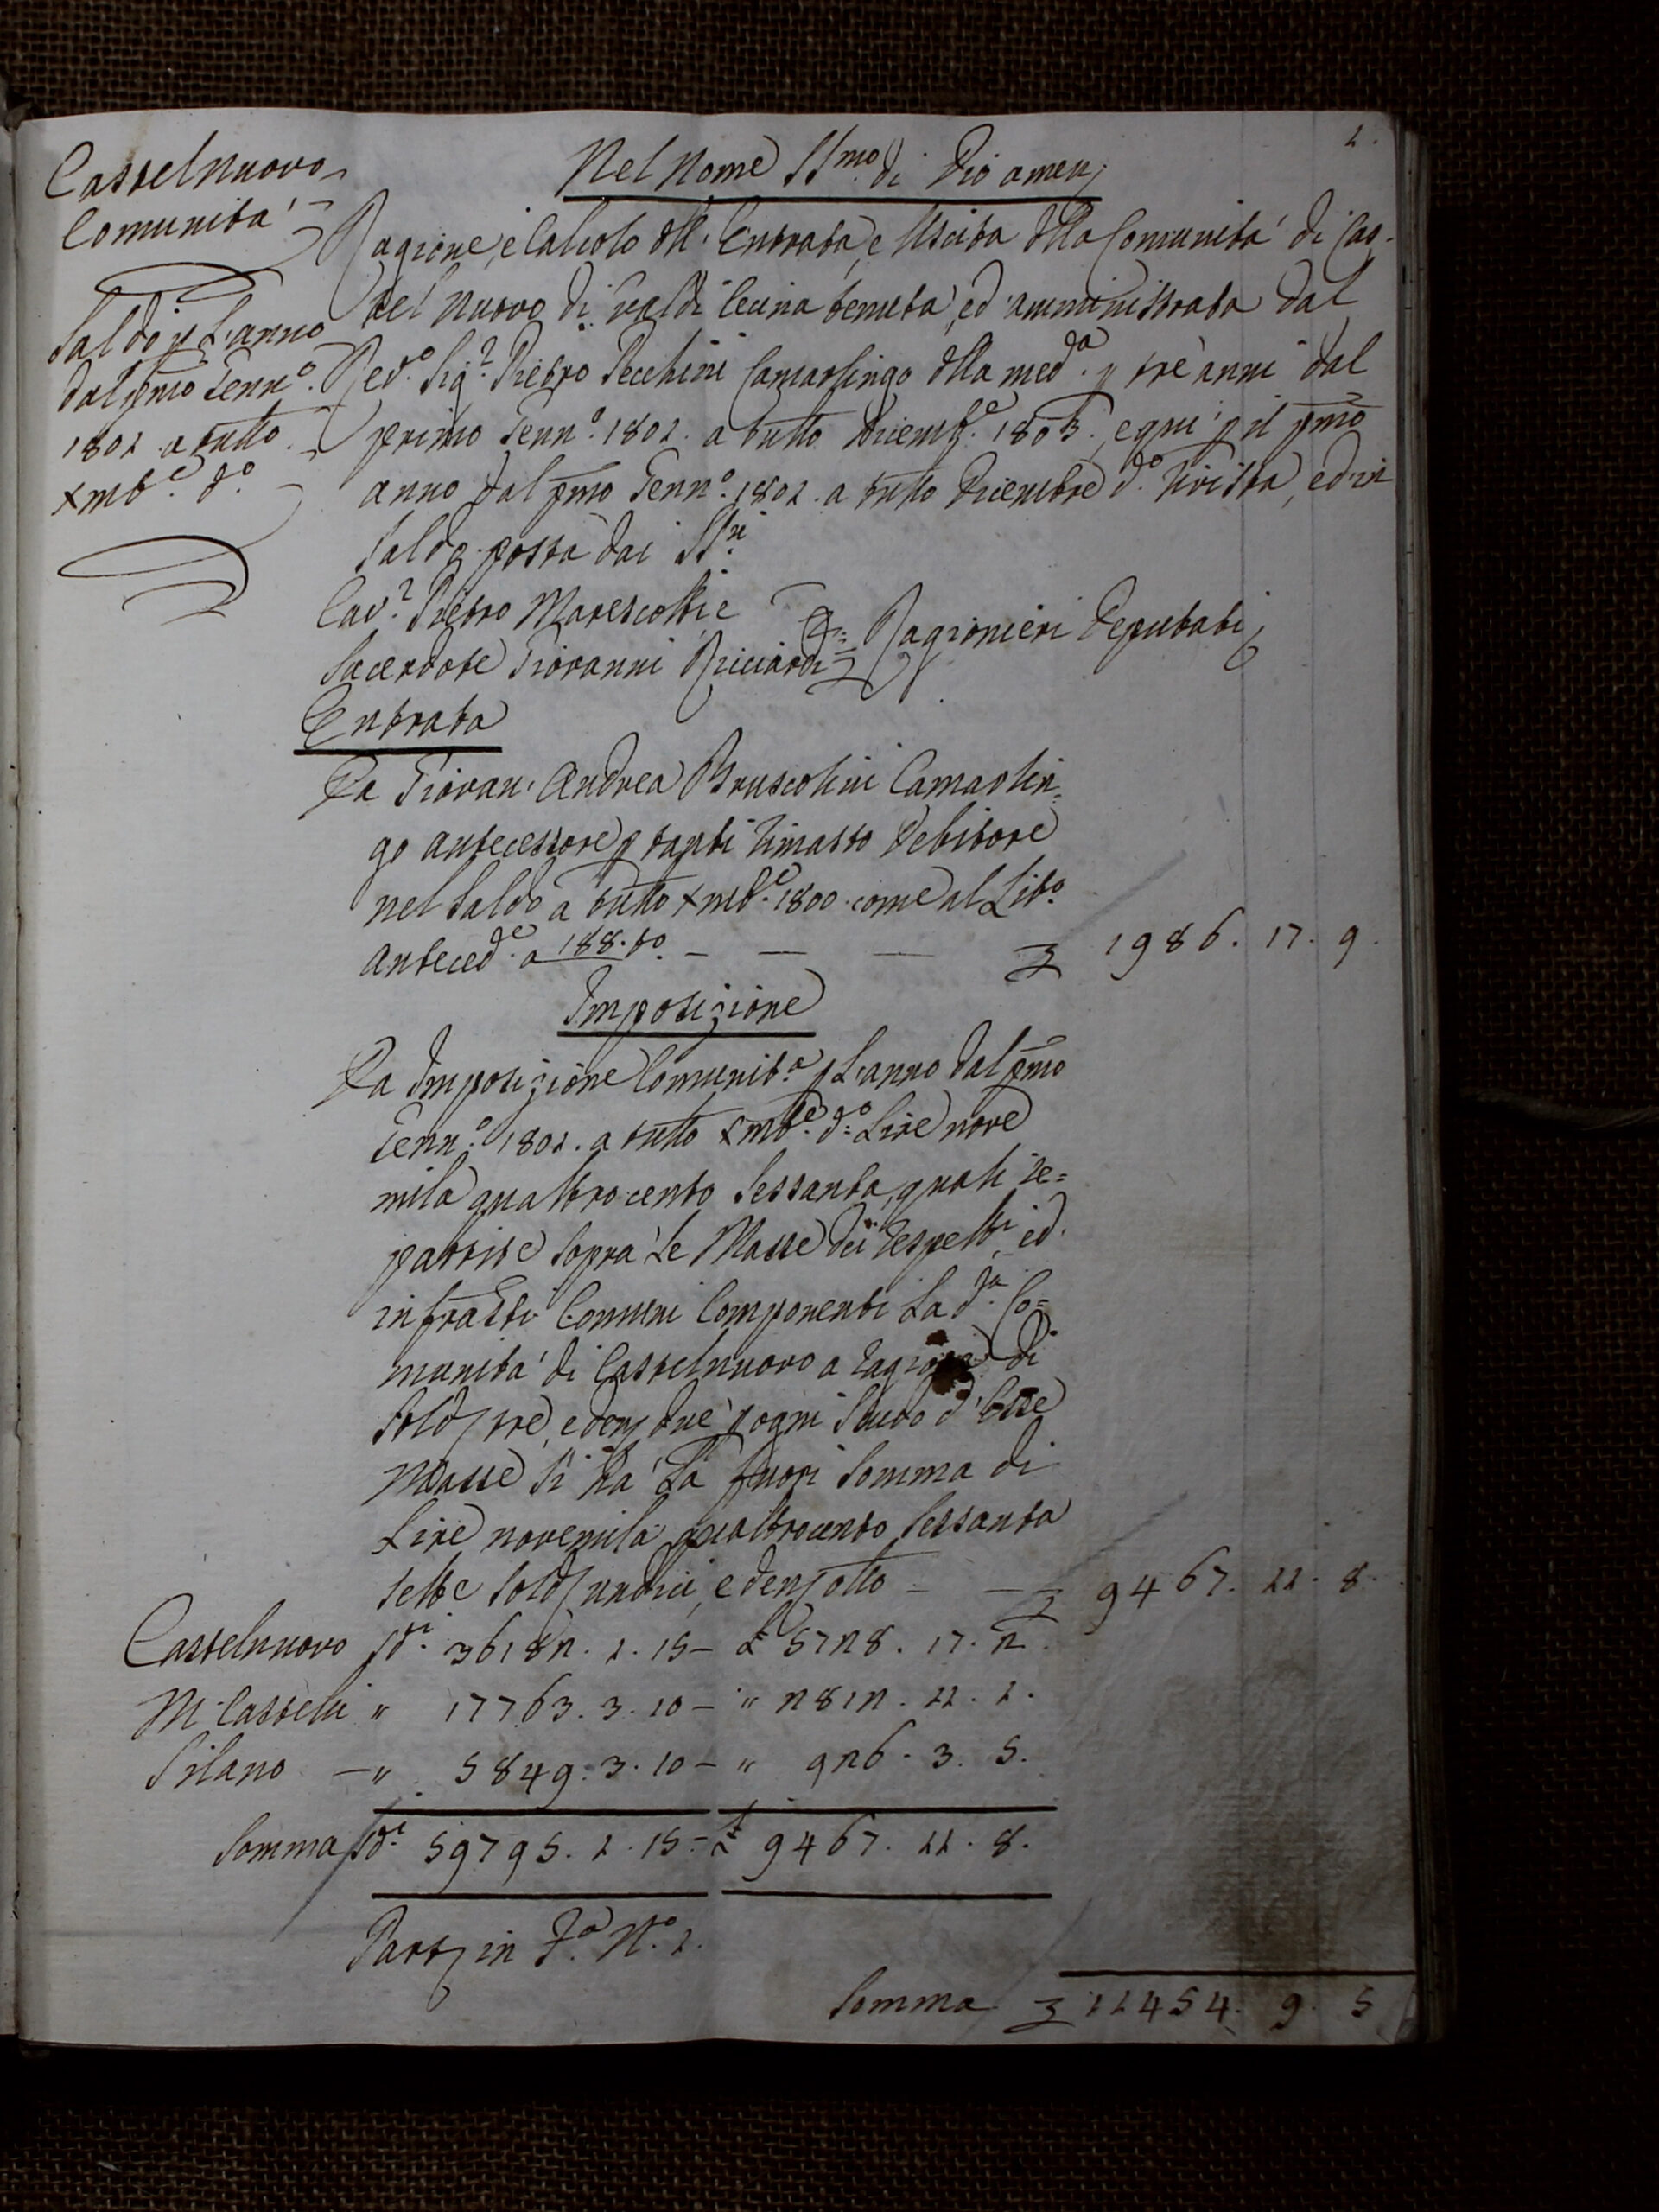 1.
Castelnuovo
Comunità
Saldo p L'anno
dal pmo Genn.o
1801. a tutto
Xmb.e d.o
Nel Nome SS.mo di Dio amen
Ragione, e Calcolo dell'Entrata, e Uscita della Comunità di Cas-
tel nuovo di Val di Cecina tenuta, ed amministrata dal
Red.o Sig.r Pietro Pecchini Camarlingo della med.a p tre anni dal
primo Genn.o 1801. a tutto Dicemb.e 1803., e qui p il pmo
anno dal pmo Genn.o 1801. a tutto Dicembre d.o rivista, ed in
Saldo posta dai SS.ri
Cav.r Pietro Marescotti e
Sacerdote Giovanni Ricciardi = Ragionieri Deputati
Entrata
Da Giovan' Andrea Bruscolini Camarlin=
go antecessore p tanti rimasto Debitore
nel Saldo a tutto Xmb.e 1800. come al Lib.o
Anteced.e a 188. to. — — — £ 1986. 17. 9.
Imposizione
Da Imposizione Comunit.a p L'anno dal pmo
Genn.o 1801. a tutto Xmb.e d.o Lire nove
mila quattrocento Sessanta, quali re=
partite Sopra Le Masse dei respett.i ed
infratti Comuni Componenti La d.a Co=
munità di Castelnuovo a ragione di
Sold tre, e den due p ogni Scudo d'Esse
Masse Si ha La fuori Somma di
Lire novemila quattrocento Sessanta
sette Sold undici, e den otto — — £ 9467. 11. 8.
Castelnuovo Sd.i 36182. 1. 15 — £ 5728. 17. 2.
M. Castelli " 17763. 3. 10 — " 2812. 11. 1.
Silano — " 5849. 3. 10 — " 926. 3. 5.
Somma Sd.i 59795. 1. 15 — £ 9467. 11. 8.
Part in F.a N.o 1.
Somma £ 11454. 9. 5